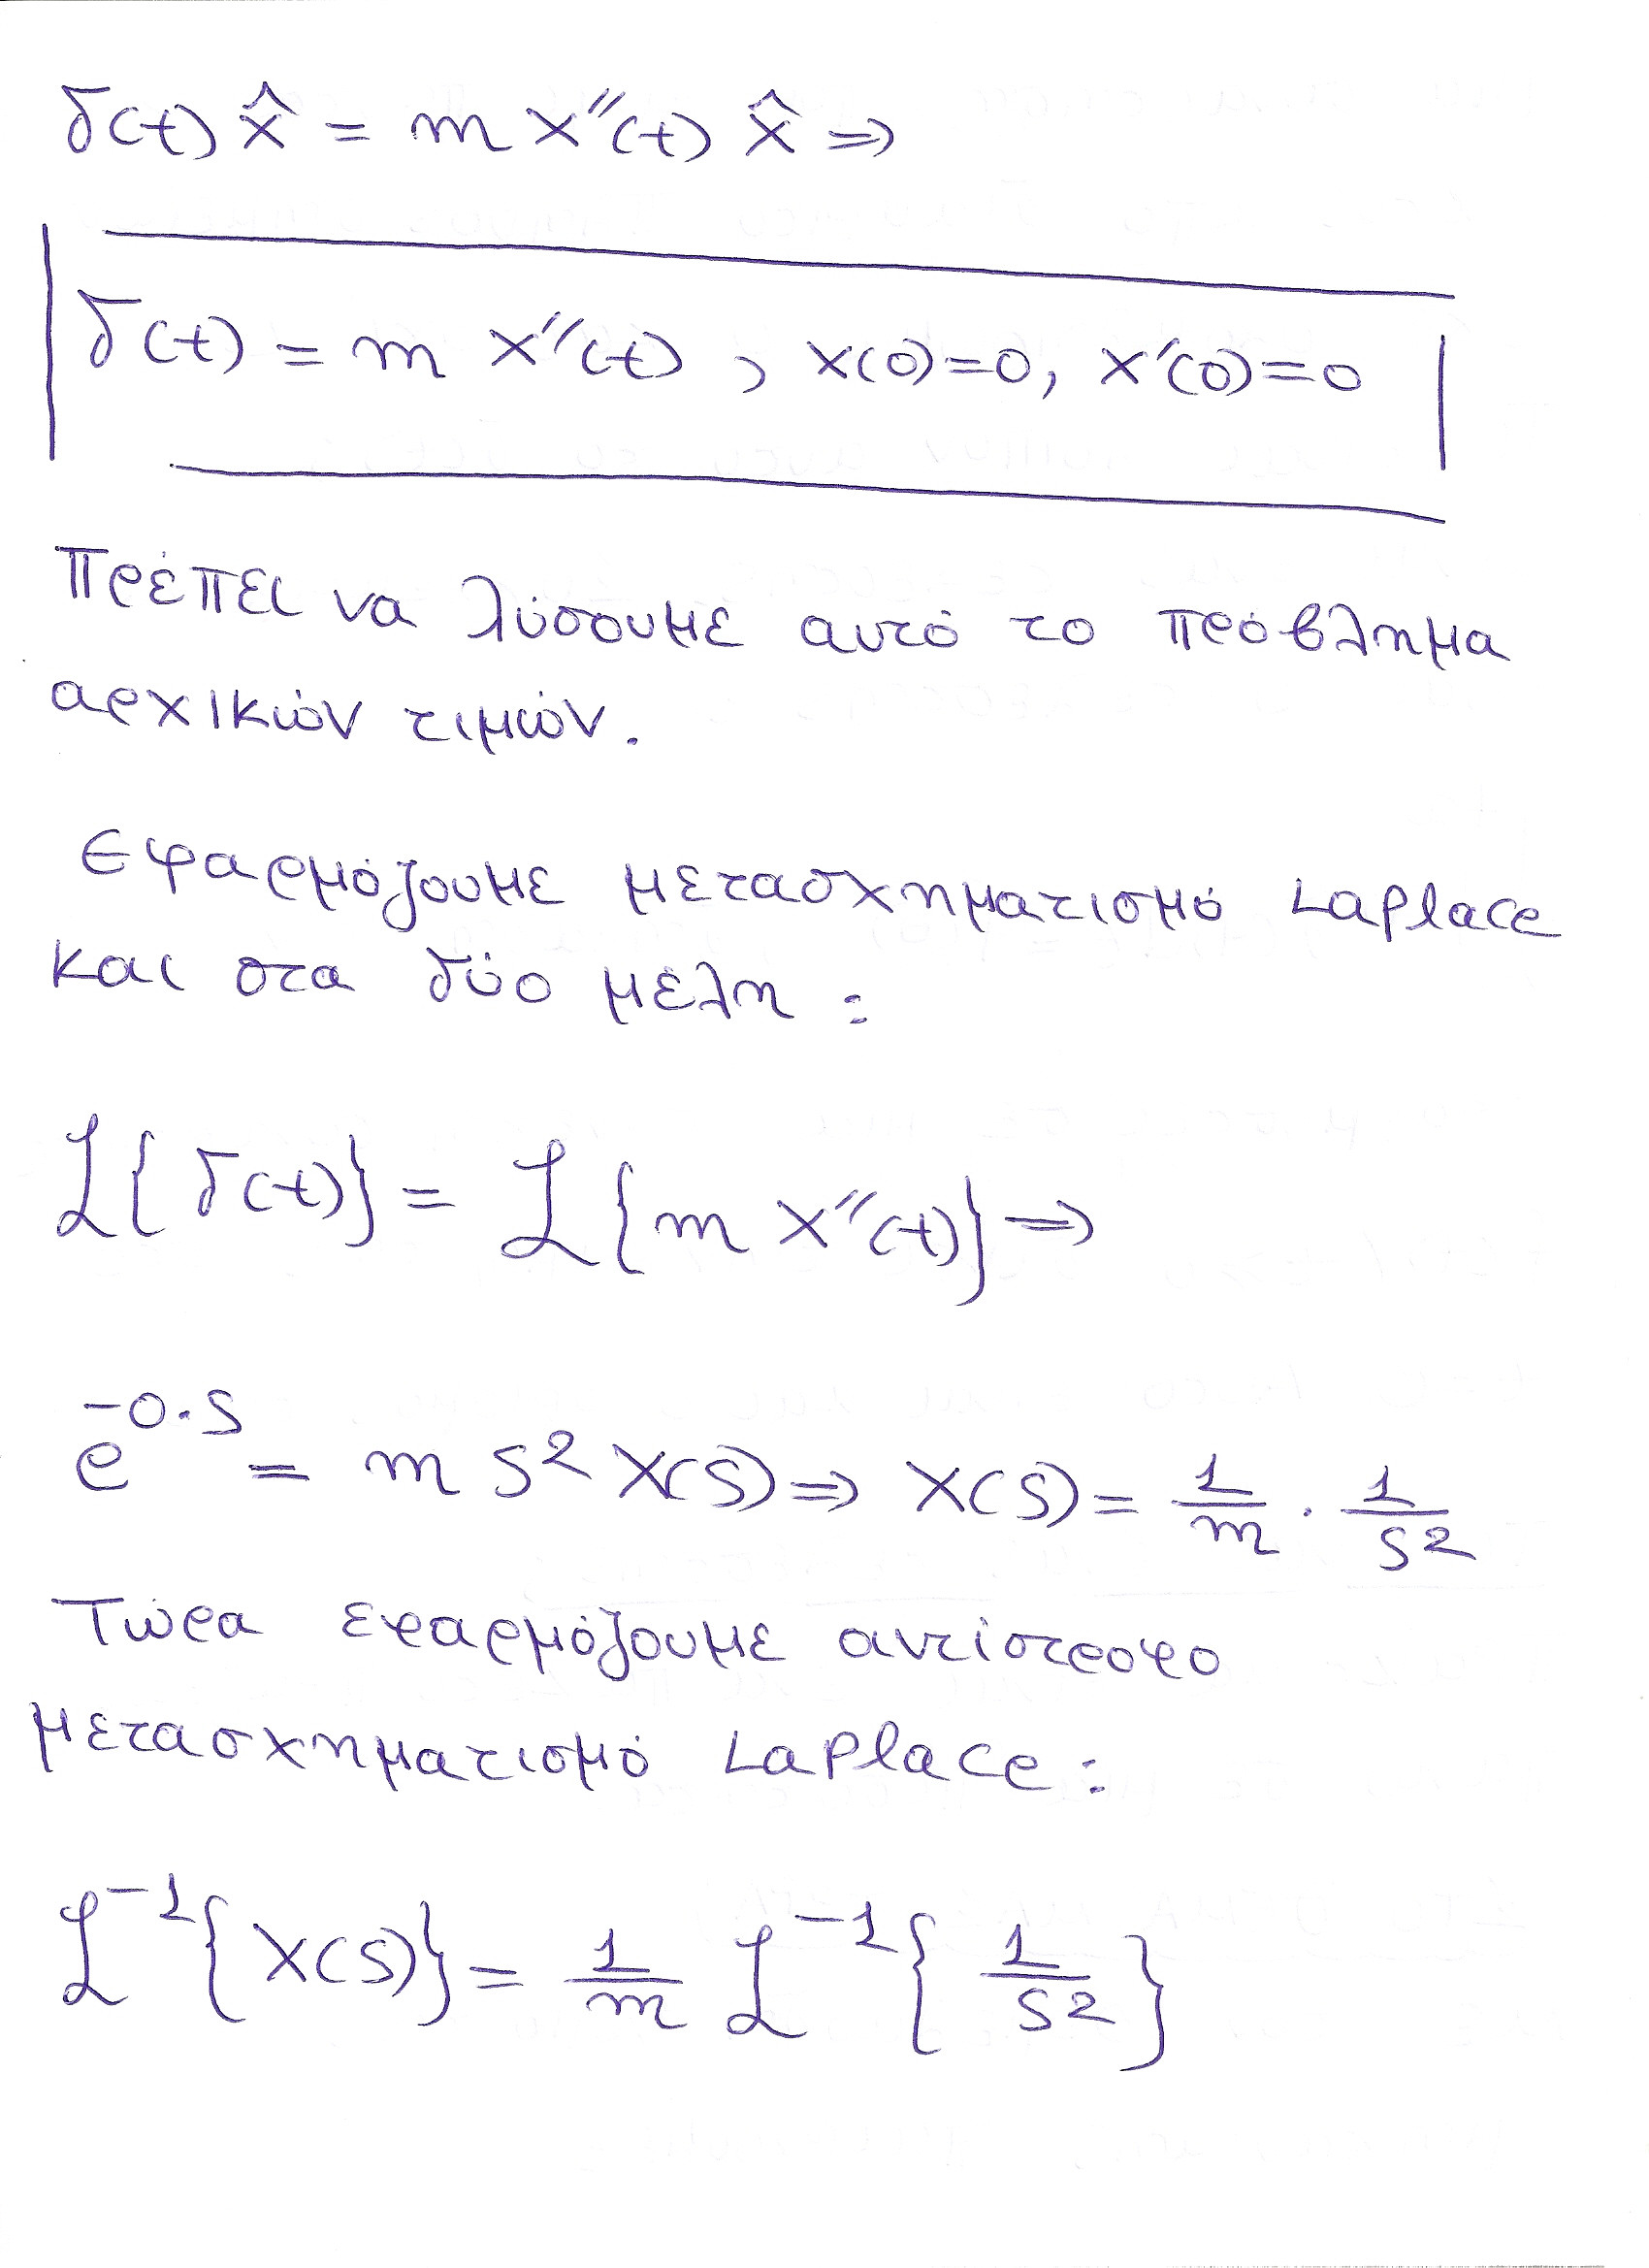 δ(t) x̂ = m x''(t) x̂ ⇒
δ(t) = m x''(t) , x(0)=0, x'(0)=0
Πρέπει να λύσουμε αυτό το πρόβλημα
αρχικών τιμών.
Εφαρμόζουμε μετασχηματισμό Laplace
και στα δύο μέλη :
ℒ{δ(t)} = ℒ{m x''(t)} ⇒
e^{-0·s} = m s² X(s) ⇒ X(s) = 1/m · 1/s²
Τώρα εφαρμόζουμε αντίστροφο
μετασχηματισμό Laplace :
ℒ⁻¹{X(s)} = 1/m ℒ⁻¹{1/s²}